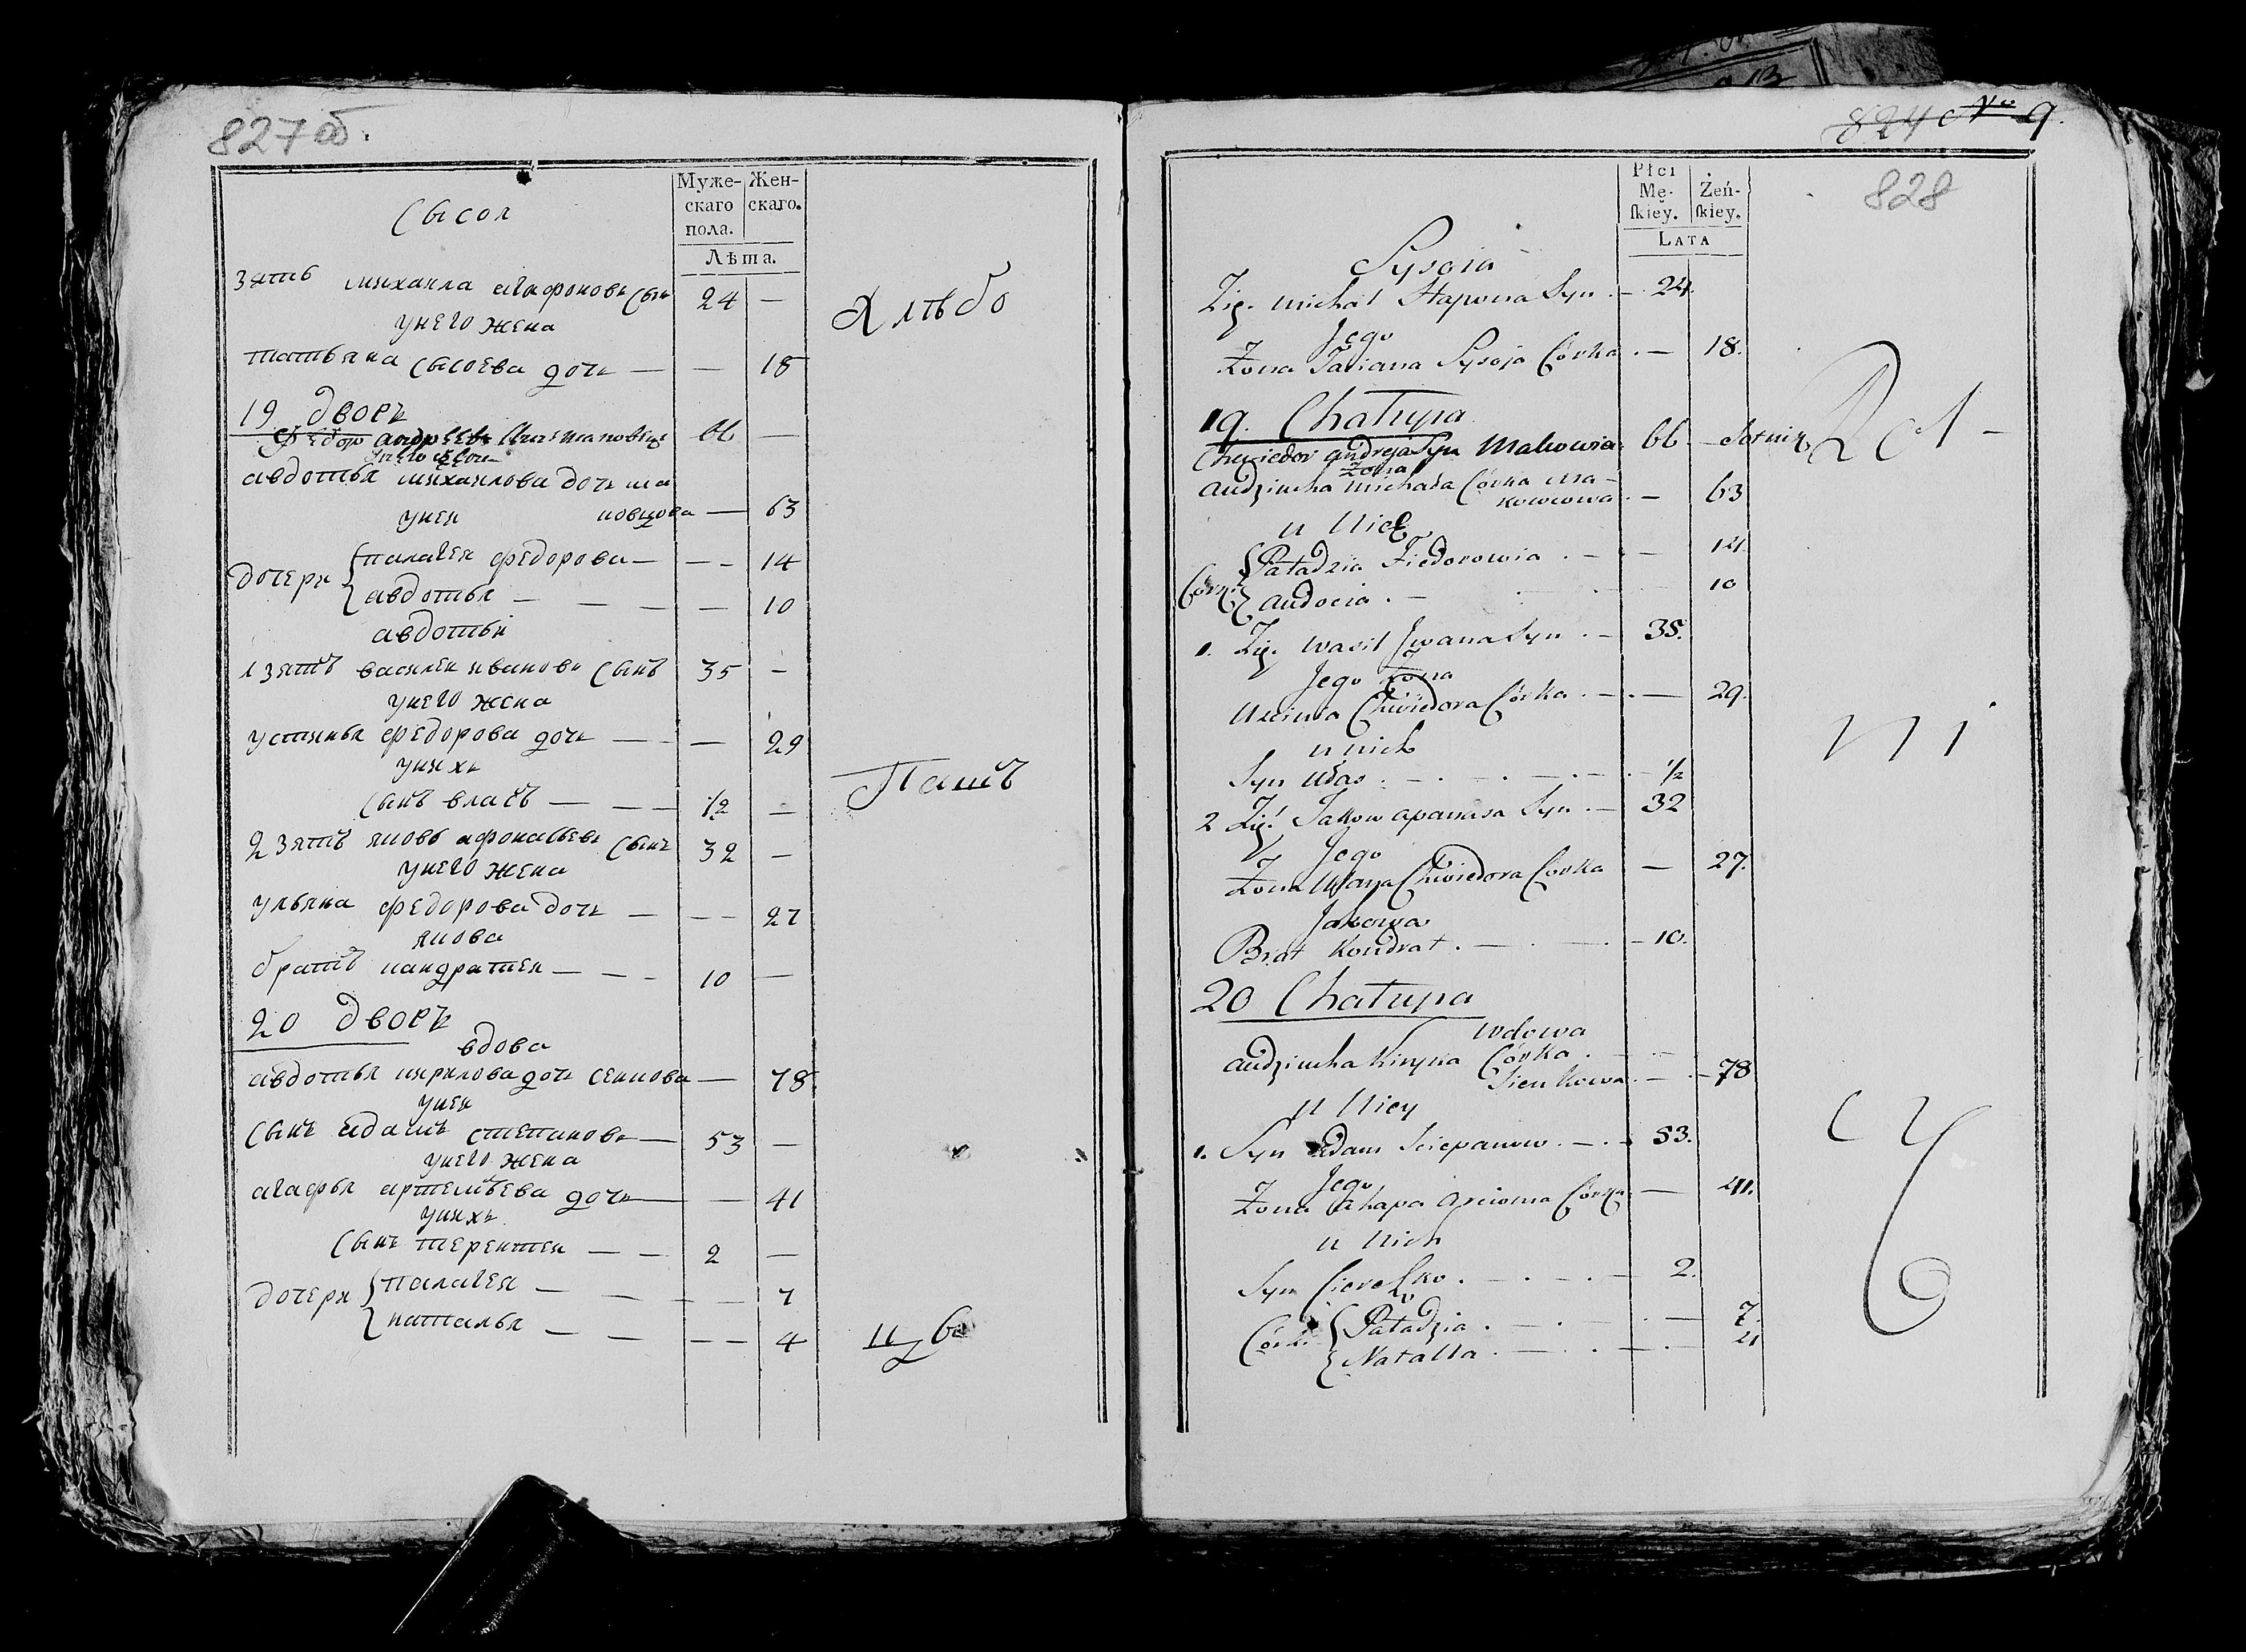 827 об.
Муже-
скаго
пола.
Жен-
скаго.
Лѣта.
Сысоя
зять михаила агафоновъ сынъ 24 —
унего жена
татьяна сысоева дочь — — 18
19 дворъ
федор андреевъ 66 —
авдотья михаилова дочь ма
ковцова — 63
унея
дочери { палагея федорова — — — 14
{ авдотья — — — — 10
авдотьи
1 зять василеи ивановъ сынъ 35 —
унего жена
устинья федорова дочь — — — 29
унихъ
сынъ власъ — — — 1/2 —
2 зять яковъ афонасьевъ сынъ 32 —
унего жена
ульяна федорова дочь — — — 27
якова
братъ кандратеи — — — 10 —
20 дворъ
вдова
авдотья кирилова дочь сенкова — 78
унея
сынъ адамъ степановъ — 53 —
унего жена
агафья артемьева дочь — — 41
унихъ
сынъ терентеи — — 2 —
дочери { палагея — — — — 7
{ наталья — — — — 4
824 № 9.
828
Płci
Mę-
skiey.
Żeń-
skiey.
Lata
Sysoia
Zię. Michał Syn . — 24.
Jego
Żona Taciana Sysoja Córka . — 18.
19. Chałupa
Chwiedor Andreja Syn 66 — Sotnik
Żona
Audziucha Michała Córka Ma-
kowcowa . — 63
u Niey
Córki { Paładzia Fiedorowia . — . — 14.
{ Audocia . — 10
1. Zię. Wasil Jwana Syn . — 35.
Jego Żona
Chwiedora Córka . — . — 29.
u nich
Syn Ułas . — . — . — . — 1/2
2 Zię. Jakow Apanasa Syn . — 32
Jego
Żona Chwiedora Córka — 27.
Jakowa
Brat Kondrat . — . — . — 10.
20 Chałupa
Wdowa
Audziucha Kiryła Córka .
Sienkowa . — . — 78
u Niey
1. Syn Adam Sciepanow . — . — 53.
Jego
Żona Ahapa Arcioma Córka — 41.
u Nich
Syn . — . — . — 2.
Córki { Paładzia . — . — . — 7.
{ Natalla . — . — . — 4